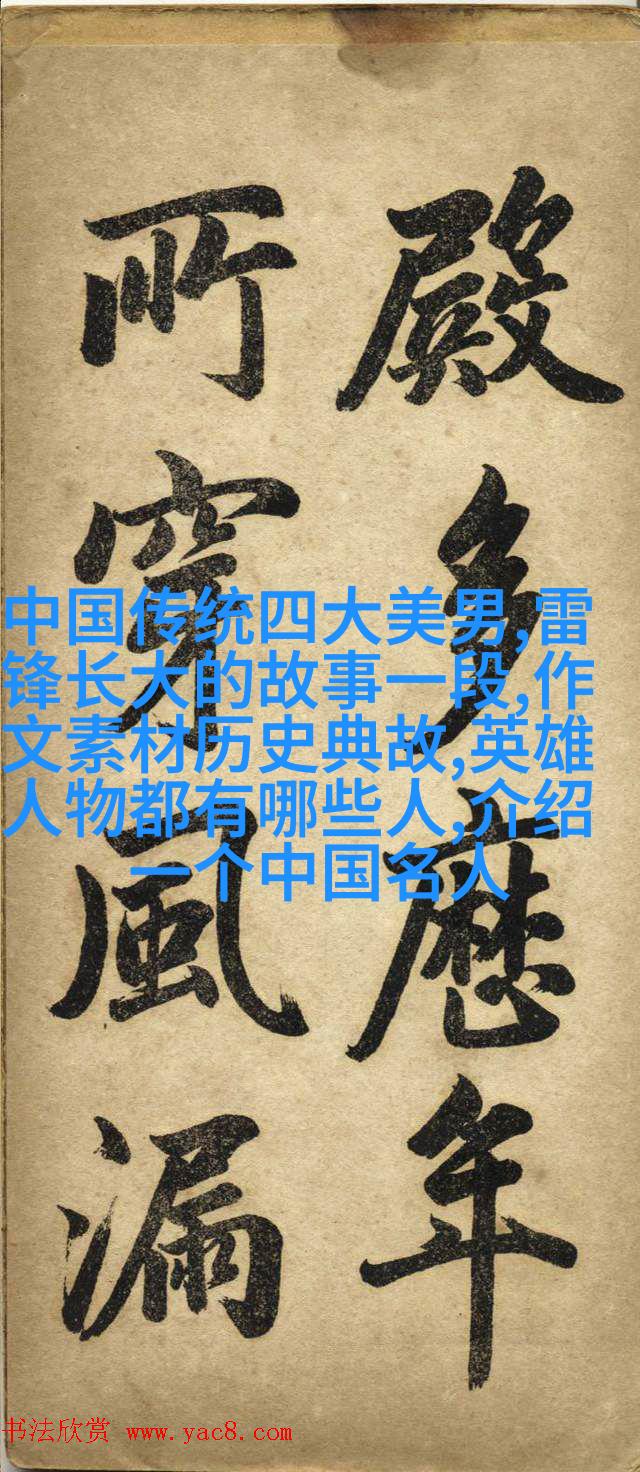 殿多歷年
所穿風漏
中国传统四大美男,雷
锋长大的故事一段,作
文素材历史典故,英雄
人物都有哪些人,介绍
一个中国名人
书法欣赏 www.yac8.com